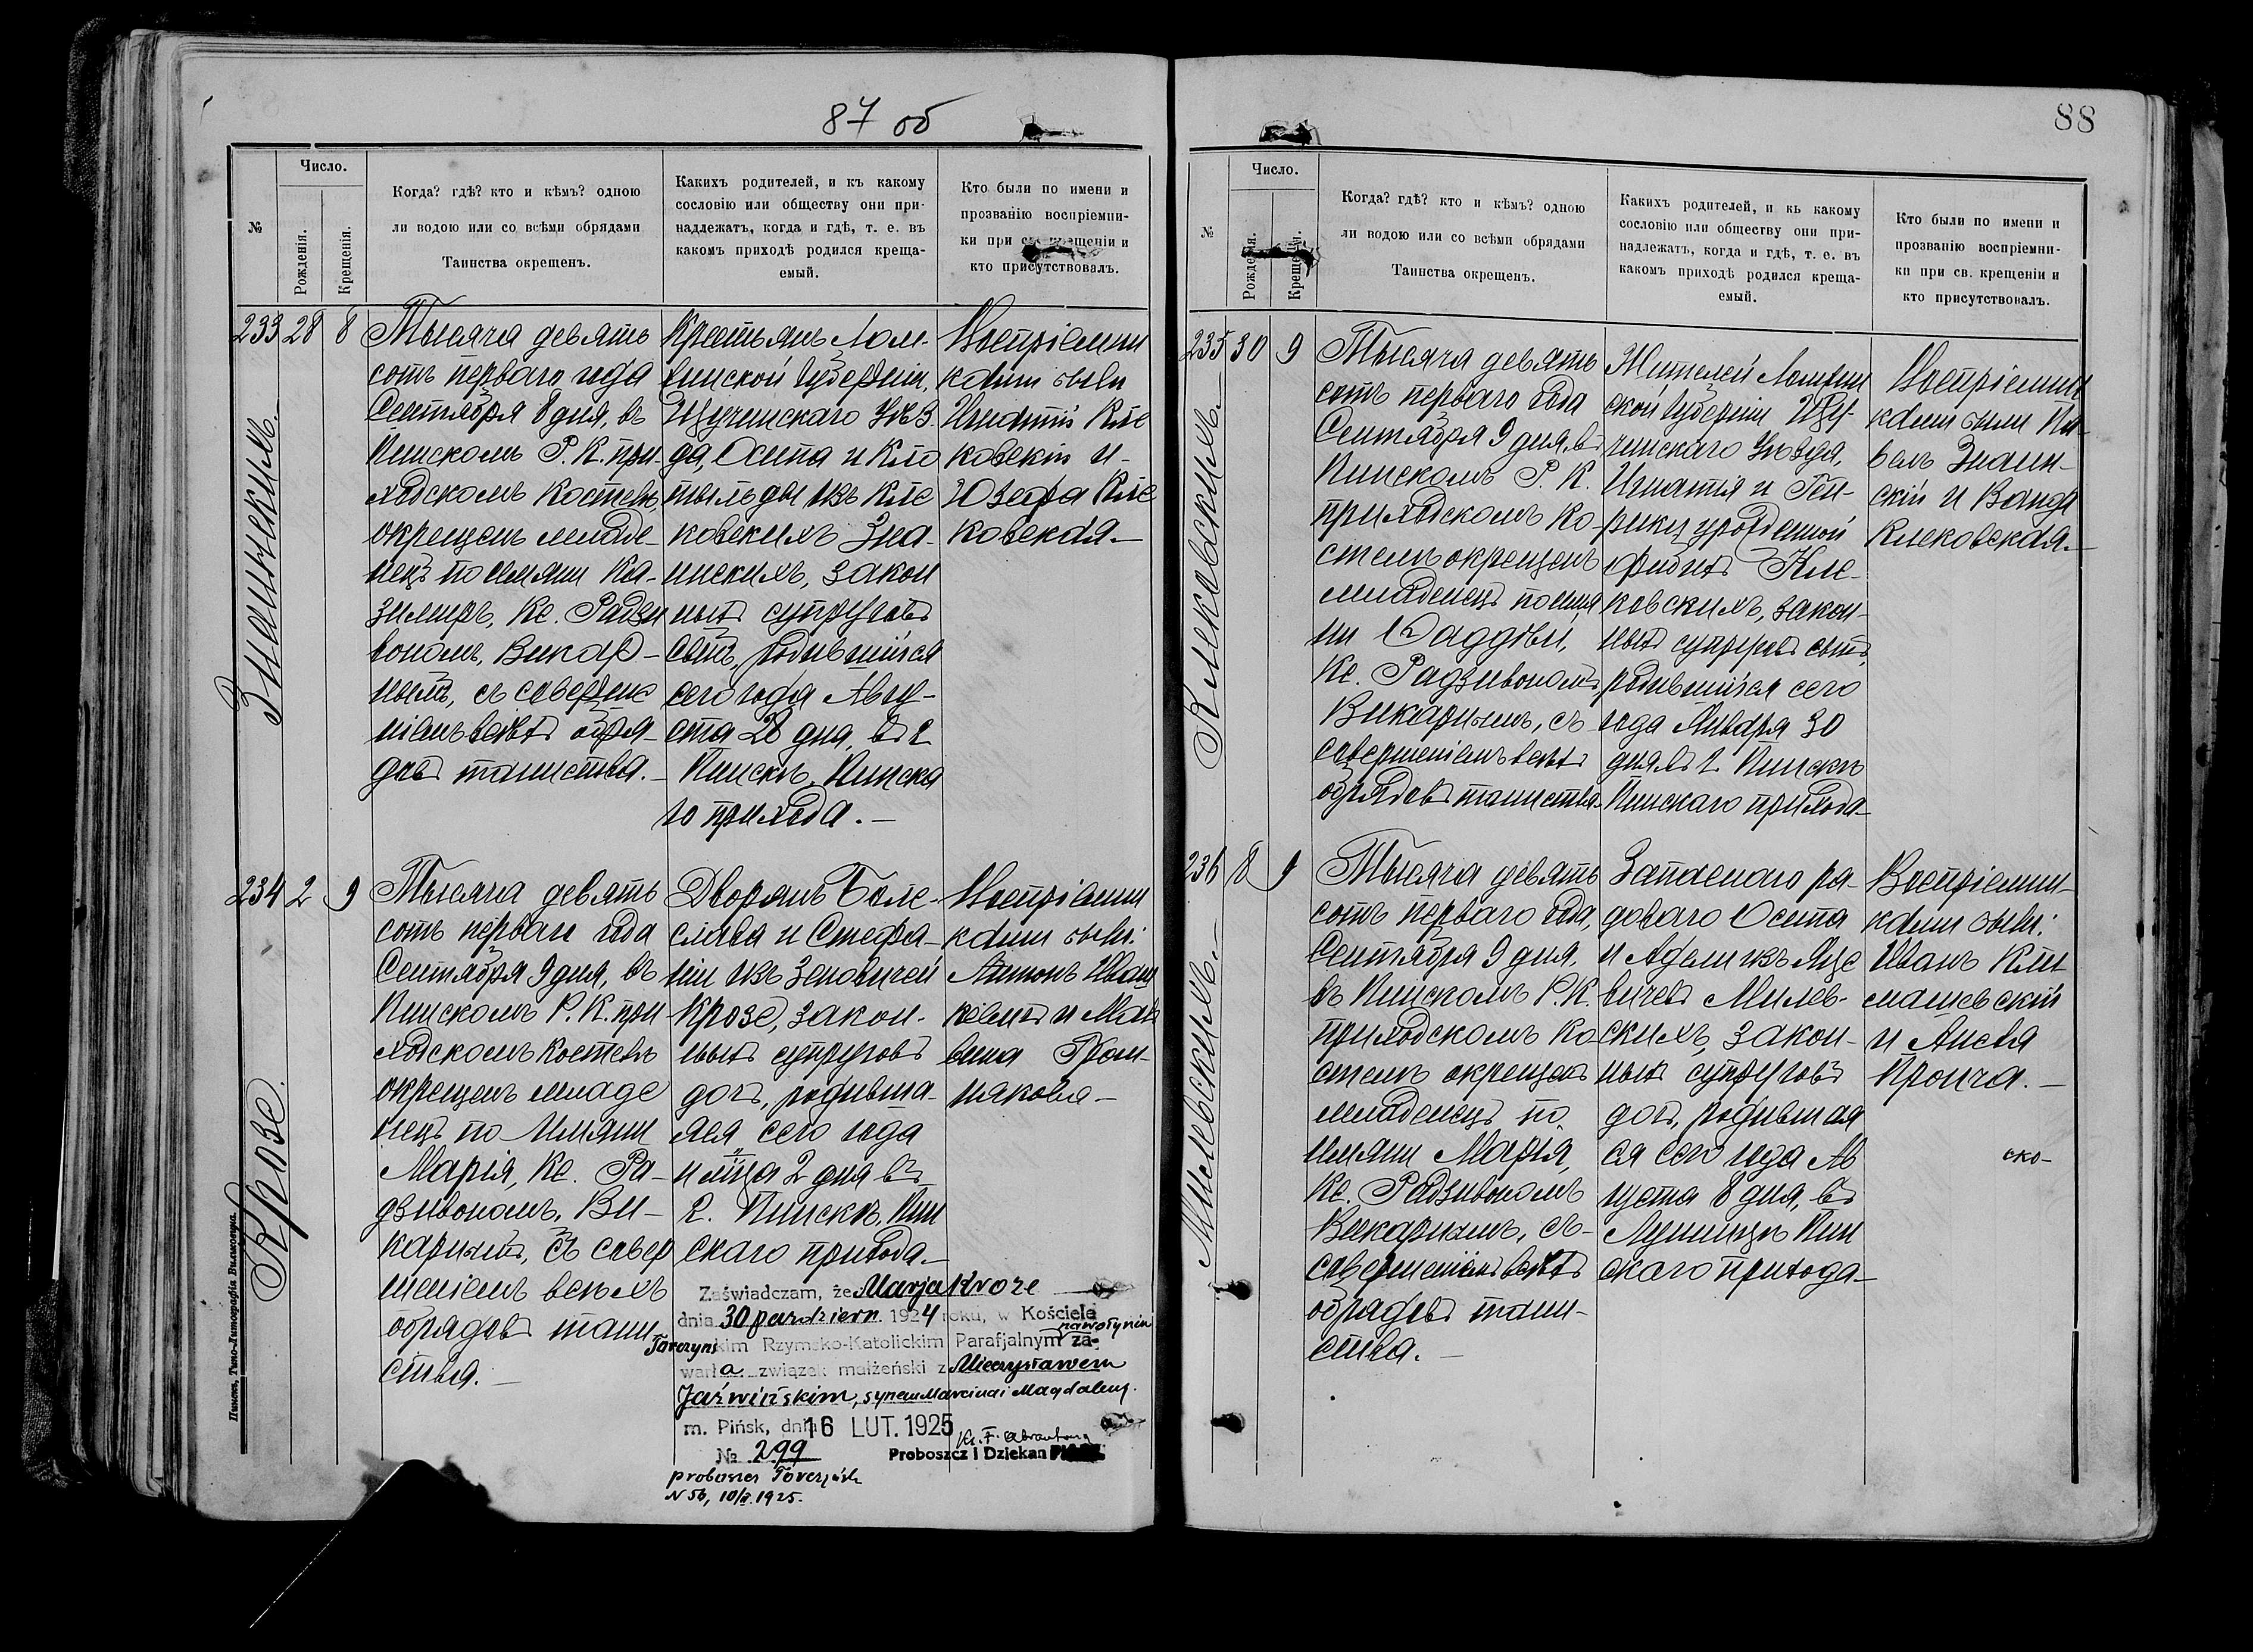 87 об
№
Число.
Рожденія.
Крещенія.
Когда? гдѣ? кто и кѣмъ? одною
ли водою или со всѣми обрядами
Таинства окрещенъ.
Какихъ родителей, и къ какому
сословію или обществу они при-
надлежатъ, когда и гдѣ, т. е. въ
какомъ приходѣ родился креща-
емый.
Кто были по имени и
прозванію воспріемни-
ки при св. крещеніи и
кто присутствовалъ.
233 28 8
Тысяча девять
сотъ перваго года
Сентября 8 дня, въ
Пинскомъ Р. К. при-
ходскомъ костелѣ,
окрещенъ младе-
нецъ по имяни Ка-
зимиръ, Кс. Радзи
вономъ, Викар-
нымъ, съ соверше
ніемъ всѣхъ обря-
довъ таинства.-
Крестьянъ Лом-
жинской Губерніи,
Щучинскаго Уѣз.
да, Осипа и Кло
тыльды изъ Кле
ковскихъ Зна-
нскихъ, закон
ныхъ супруговъ
сынъ, родившійся
сего года Авгу-
ста 28 дня, въ г.
Пинскѣ, Пинска
го прихода.-
Воспріемни
ками были
Игнатій Кле
ковскій и-
Юзефа Кле
ковская.-
234 2 9
Тысяча девять
сотъ перваго года
Сентября 9 дня, въ
Пинскомъ Р. К. при
ходскомъ костелѣ
окрещенъ младе
нецъ по имяни
Марія, Кс. Ра-
дзивономъ, Ви-
карнымъ, съ совер
шеніемъ всѣхъ
обрядовъ таин
ства.-
Дворянъ Боле-
слава и Стефа-
ніи изъ Зеновичей
Крозе, закон-
ныхъ супруговъ
дочь, родивша-
яся сего года
2 дня въ
г. Пинскѣ, Пин
скаго прихода.-
Воспріемни
ками были:
Антонъ Иваш
кевичъ и
Крозе.
Zaświadczam, że Marja Kroze
dnia 30 październ. 1924 roku, w Kościele
Torczyńskim Rzymsko-Katolickim Parafjalnym na Wołyniu za-
warła związek małżeński z Mieczysławem
Jaźwińskim, synem Marcina i Magdaleny.
m. Pińsk, dnia 16 LUT. 1925
№ 299
Proboszcz i Dziekan
proboszcz
N 56, 10/II.1925.
Пинскъ. Типо-Литографія Вилковича.
88
№
Число.
Рожденія.
Крещенія.
Когда? гдѣ? кто и кѣмъ? одною
ли водою или со всѣми обрядами
Таинства окрещенъ.
Какихъ родителей, и къ какому
сословію или обществу они при-
надлежатъ, когда и гдѣ, т. е. въ
какомъ приходѣ родился креща-
емый.
Кто были по имени и
прозванію воспріемни-
ки при св. крещеніи и
кто присутствовалъ.
235 30 9
Клековскимъ.-
Тысяча девять
сотъ перваго года
Сентября 9 дня, въ
Пинскомъ Р. К.
приходскомъ ко-
стелѣ окрещенъ
младенецъ по имя
ни Фаддѣй,
Кс. Радзивономъ
Викарнымъ, съ
совершеніемъ всѣхъ
обрядовъ таинства.
Жителей Ломжин
ской Губерніи Щу-
чинскаго Уѣзда,
Игнатія и Ген-
рики урожденной
Кле-
ковскихъ, закон-
ныхъ супруговъ сынъ,
родившійся сего
года Января 30
дня въ г. Пинскѣ
Пинскаго прихода-
Воспріемни
ками были Па-
велъ
и Ванда
Клековская.-
236 8 9
Милевскимъ.-
Тысяча девять
сотъ перваго года,
Сентября 9 дня,
въ Пинскомъ Р. К.
приходскомъ ко
стелѣ окрещенъ
младенецъ по
имяни Марія,
Кс. Радзивономъ
Викарнымъ, съ-
совершеніемъ всѣхъ
обрядовъ таин-
ства.-
Запаснаго ря-
доваго Осипа
и Адели изъ Яце
вичевъ Милев-
скихъ, закон-
ныхъ супруговъ
дочь, родившая
ся сего года Ав
густа 8 дня, въ
Лунинцѣ Пин
скаго прихода-
Воспріемни-
ками были:
Иванъ Кли-
машевскій
и Анеля
Пронча.-
ско-